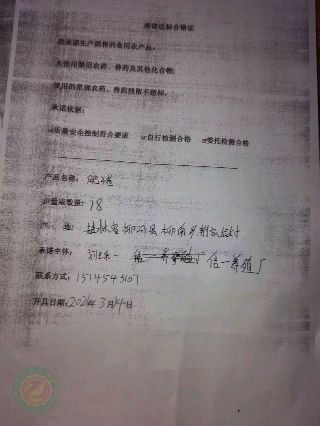 承诺达标合格证
我承诺生产销售的食用农产品:
未使用禁用农药、兽药及其他化合物;
使用的常规农药、兽药残留不超标。
承诺依据:
☑质量安全控制符合要求 ☑自行检测合格 ☑委托检测合格
产品名称: 肥猪
数量或数量: 18
产 地: 吉林省柳河县柳南乡
承诺主体: 信一养殖厂 信一养殖厂
联系方式:
开具日期: 2026年3月14日